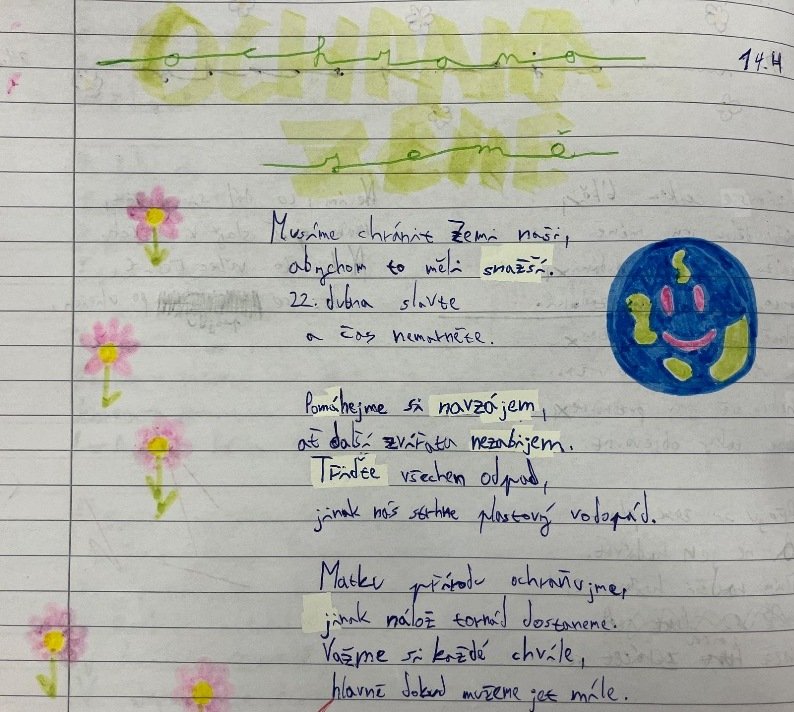 OCHRANA
ochrana
14.4
ZEMĚ
země
Musíme chránit Zemi naši,
abychom to měli snažší.
22. dubna slavte
a čas nemarněte.
Pomáhejme si navzájem,
ať další zvířata nezabijem.
Třiďte všechen odpad,
jinak nás strhne plastový vodopád.
Matku přírodu ochraňujme,
jinak nálož tornád dostaneme.
Važme si každé chvíle,
hlavně dokud mužeme jet míle.